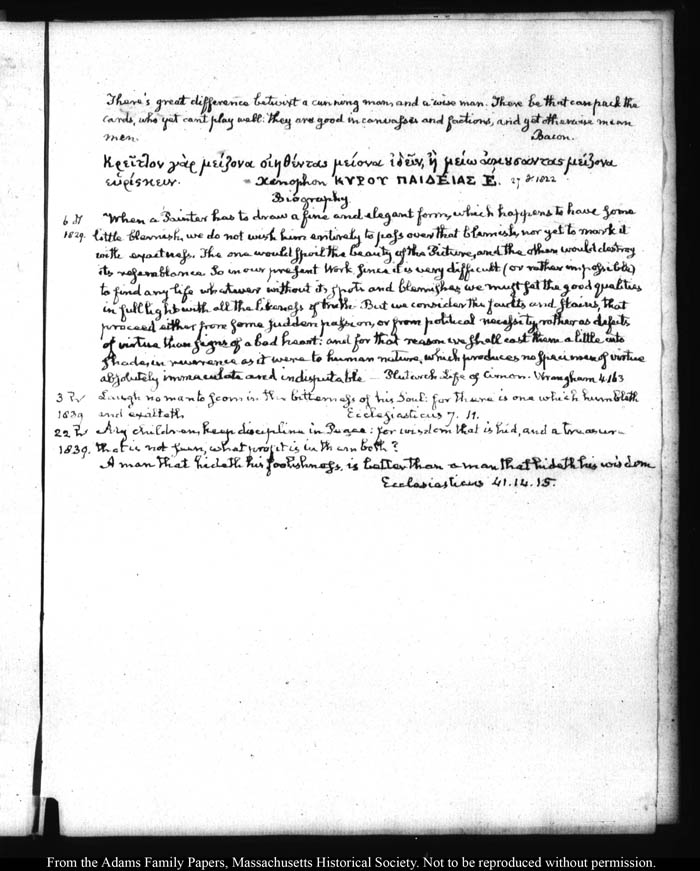 There's great difference betwixt a cunning man, and a wise man. There be that can pack the
cards, who yet cant play well: they are good in canvasses and factions, and yet otherwise mean
men. Bacon.
Κρεῖττον γὰρ μείζονα οἰηθέντας μείονα ἰδεῖν, ἢ μείω ἀκουσαντας μείζονα
εὑρίσκειν. Xenophon ΚΥΡΟΥ ΠΑΙΔΕΙΑΣ Έ. 27 1822
Biography
6 "When a Painter has to draw a fine and elegant form, which happens to have some
1829. little blemish, we do not wish him entirely to pass over that blemish, nor yet to mark it
with exactness. The one would spoil the beauty of the Picture, and the other would destroy
its resemblance. So in our present Work since it is very difficult (or rather impossible)
to find any life whatever without its spots and blemishes, we must set the good qualities
in full light with all the likeness of truth. But we consider the faults and stains, that
proceed either from some sudden passion, or from political necessity, rather as defects
of virtue than signs of a bad heart: and for that reason we shall cast them a little into
shade, in reverence as it were to human nature, which produces no specimen of virtue
absolutely immaculate and indisputable — Plutarch Life of Cimon. Wrangham 4.163
3 Laugh no man to scorn in the bitterness of his Soul: for there is one which humbleth
1839 and exalteth. Ecclesiasticus 7. 11.
22 My children, keep discipline in Peace: for wisdom that is hid, and a treasure
1839. that is not seen, what profit is in them both?
A man that hideth his foolishness, is better than a man that hideth his wisdom
Ecclesiasticus 41.14.15.
From the Adams Family Papers, Massachusetts Historical Society. Not to be reproduced without permission.